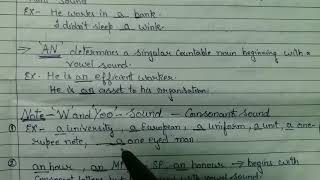 sound
Ex- He works in a bank.
I didn't sleep a wink.
⇒ 'AN' determines a singular countable noun beginning with a
vowel sound.
Ex- He is an efficient worker.
He is an asset to his organisation.
Note- 'W' and 'Yoo' - Sound - Consonant Sound
① Ex- a university, a European, a uniform, a unit, a one-
rupee note, a one eyed man
② an hour, an MP, SP, an honour → begins with
Consonant but with vowel sound.